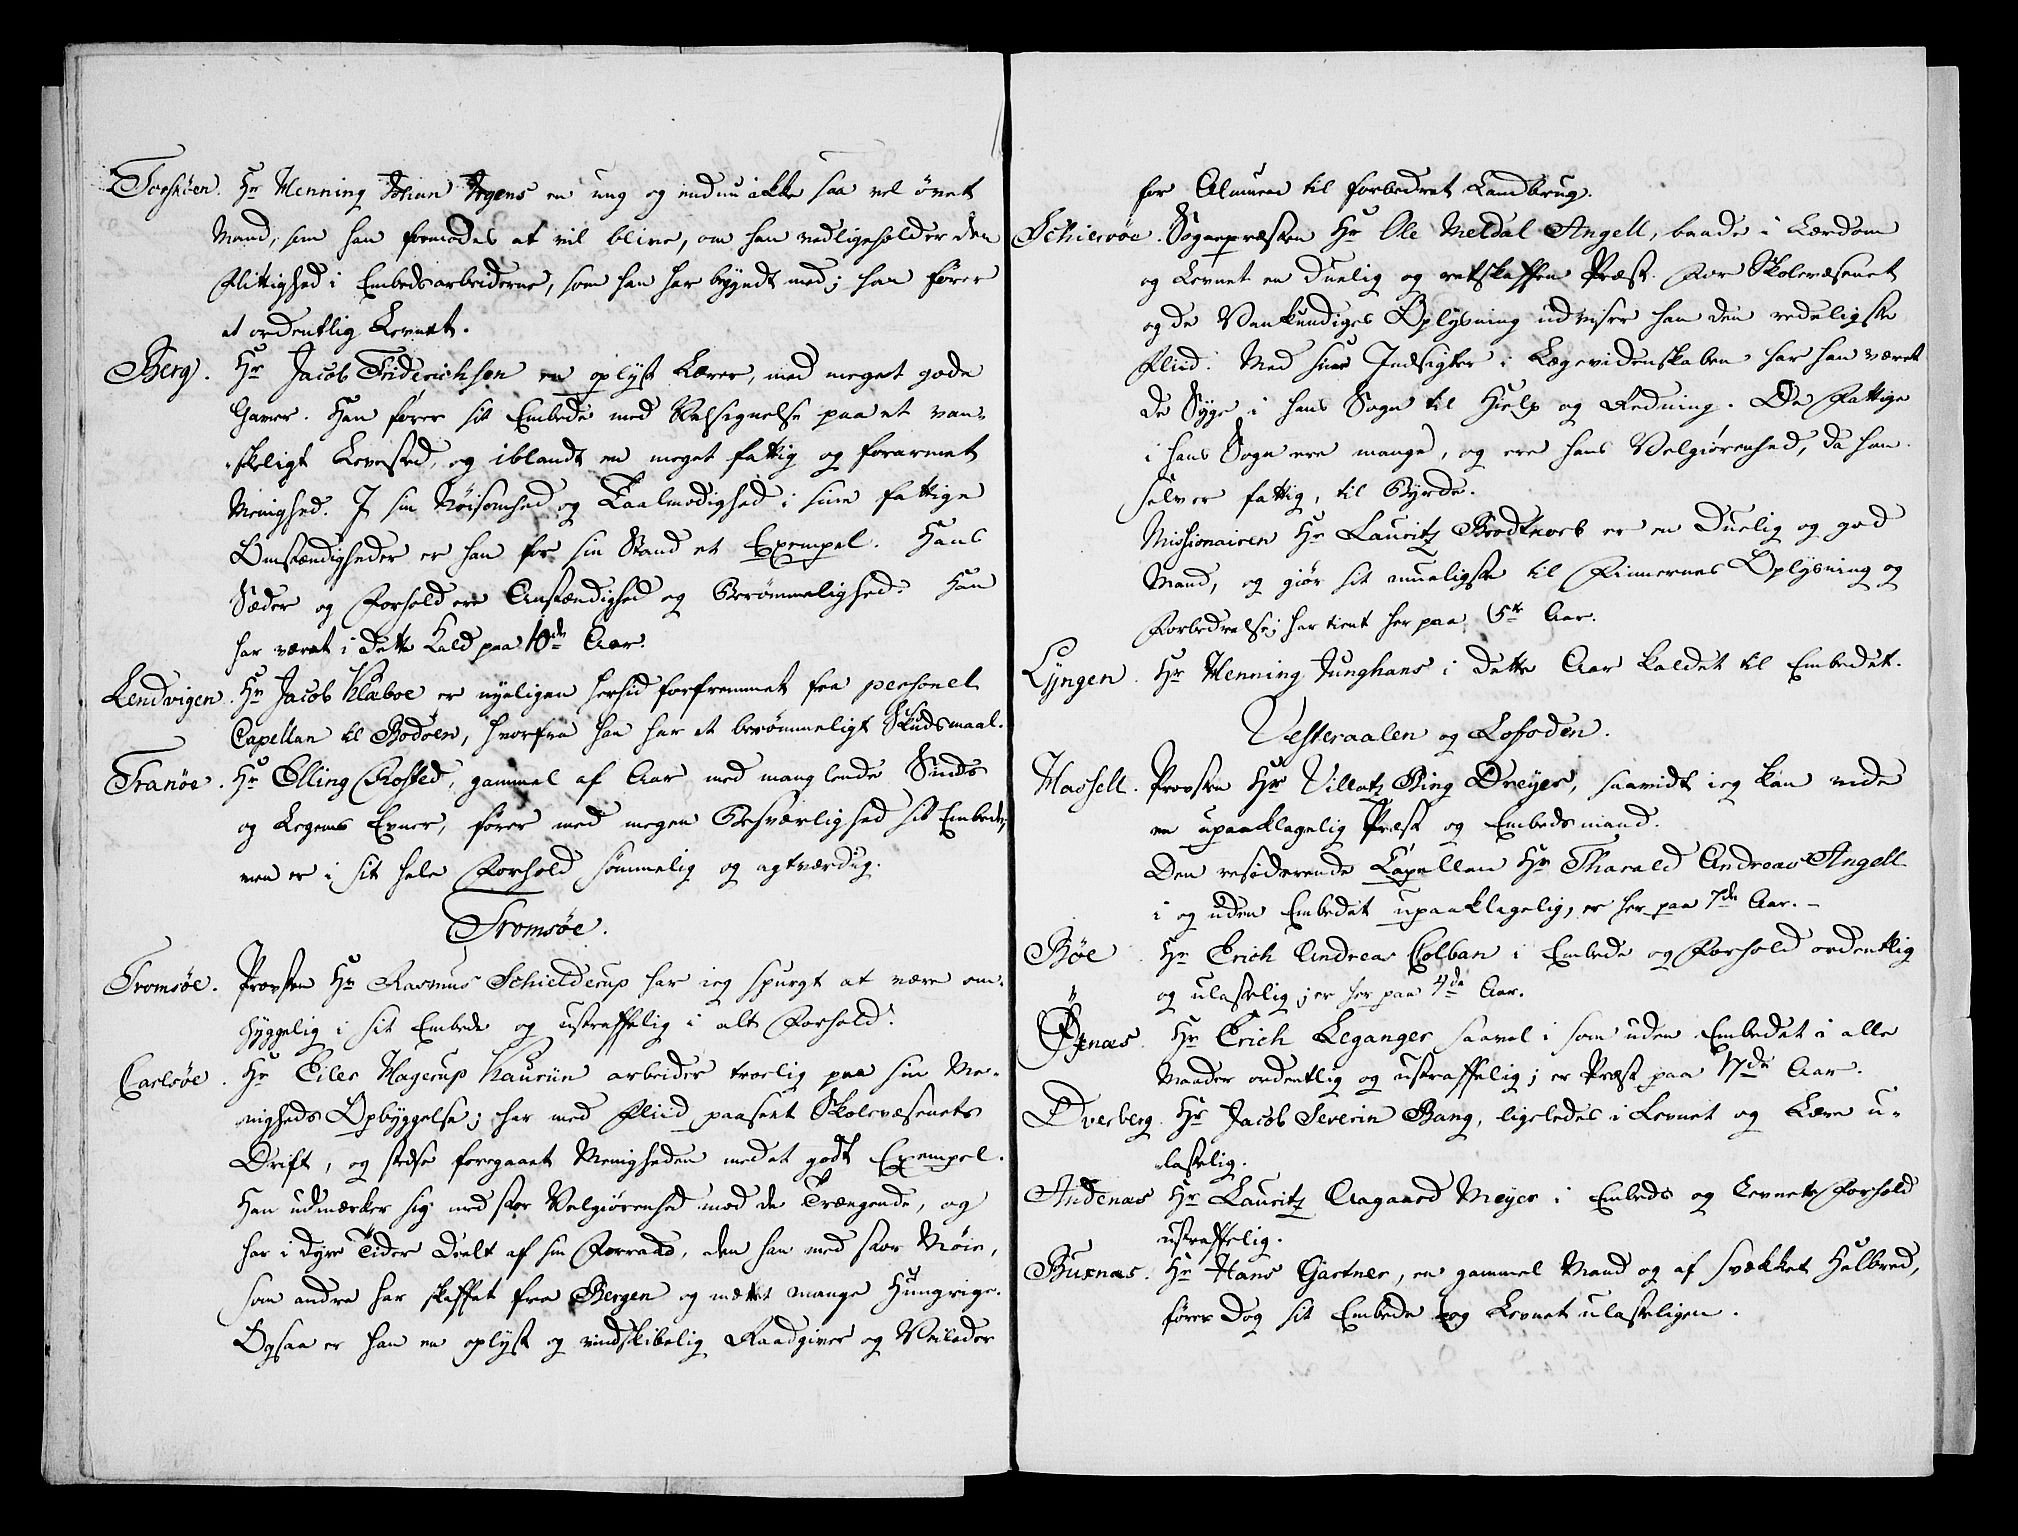 Torskøen. Hr Henning Johan Irgens en ung og endnu ikke saa vel övet
Mand, som han formodes at vil blive, om han vedligeholder den
Flittighed i Embedsarbeiderne, som han har begyndt med; han fører
et ordentlig Levnet.
Berg. Hr Jacob Friderichsen en oplyst Lærer, med meget gode
Gaver. Han fører sit Embede med Velsignelse paa et van-
skeligt Levested, og iblandt en meget fattig og forarmet
Menighed. I sin Nöisomhed og Taalmodighed i sine fattige
Omstændigheder er han for sin Stand et Exempel. Hans
Sæder og Forhold ere Anstændighed og Berømmelighed. Han
har været i dette Kald paa 10de Aar.
Lendvigen. Hr Jacob Klæboe er nyeligen hersid forfremmet fra personel
Capellan til Bodöen, hvorfra han har et berømmeligt Skudsmaal.
Tranöe. Hr Elling Rosted, gammel af Aar med manglende Sinds
og Legems Evner, fører med megen Besværlighed sit Embede,
men er i sit hele Forhold sömmelig og agtværdig.
Tromsöe.
Tromsöe. Provsten Hr Rasmus Schielderup har ieg spurgt at være om-
hyggelig i sit Embede og ustraffelig i alt Forhold.
Carlsöe. Hr Eiler Hagerup Kaurin arbeider troelig paa sin Me-
nigheds Opbyggelse; har med Fliid paaseet Skolevæsenets
Drift, og stedse foregaaet Menigheden med et godt Exempel.
Han udmærker sig med stor Velgiörenhed mod de Trængende, og
har i dyre Tider deelt af sin Forraad, den han med stor Möie,
som andre har skaffet fra Bergen og mættet mange Hungrige.
Ogsaa er han en oplyst og vindskibelig Raadgiver og Veileder
for Almuen til forbedret Landbrug.
Schiervöe. Sognepræsten Hr Ole Meldal Angell, baade i Lærdom
og Levnet en duelig og retskaffen Præst. For Skolevæsenet
og de Vankundiges Oplysning udviser han den redeligste
Fliid. Med sine Indsigter i Lægevidenskaben har han været
de Syge i hans Sogn til Hielp og Redning. De Fattige
i hans Sogn ere mange, og ere hans Velgiörenhed, da han
selv er fattig, til Byrde.
Missionairen Hr Lauritz Brodtkorb er en duelig og god
Mand, og giör sit mueligste til Finnernes Oplysning og
Forbedrelse; har tient her paa 5te Aar.
Lyngen. Hr Henning Junghans i dette Aar kaldet til Embedet.
Vesteraalen og Lofoden.
Hassell. Provsten Hr Villatz Bing Dreyer, saavidt ieg kan vide
en upaaklagelig Præst og Embedsmand.
Den residerende Capellan Hr Tharald Andreas Angell
i og uden Embedet upaaklagelig, er her paa 7de Aar.
Böe Hr Erich Andreas Colban i Embede og Forhold ordentlig
og ulastelig; er her paa 4de Aar.
Öxnæs. Hr Erich Leganger saavel i som uden Embedet i alle
Maader ordentlig og ustraffelig; er Præst paa 17de Aar.
Dverberg. Hr Jacob Severin Bang, ligeledes i Levnet og Lære u-
lastelig.
Andenæs Hr Lauritz Aagaard Meyer i Embeds og Levnets Forhold
ustraffelig.
Buxnæs. Hr Hans Gartner, en gammel Mand og af svækket Helbred,
fører dog sit Embede og Levnet ulasteligen.